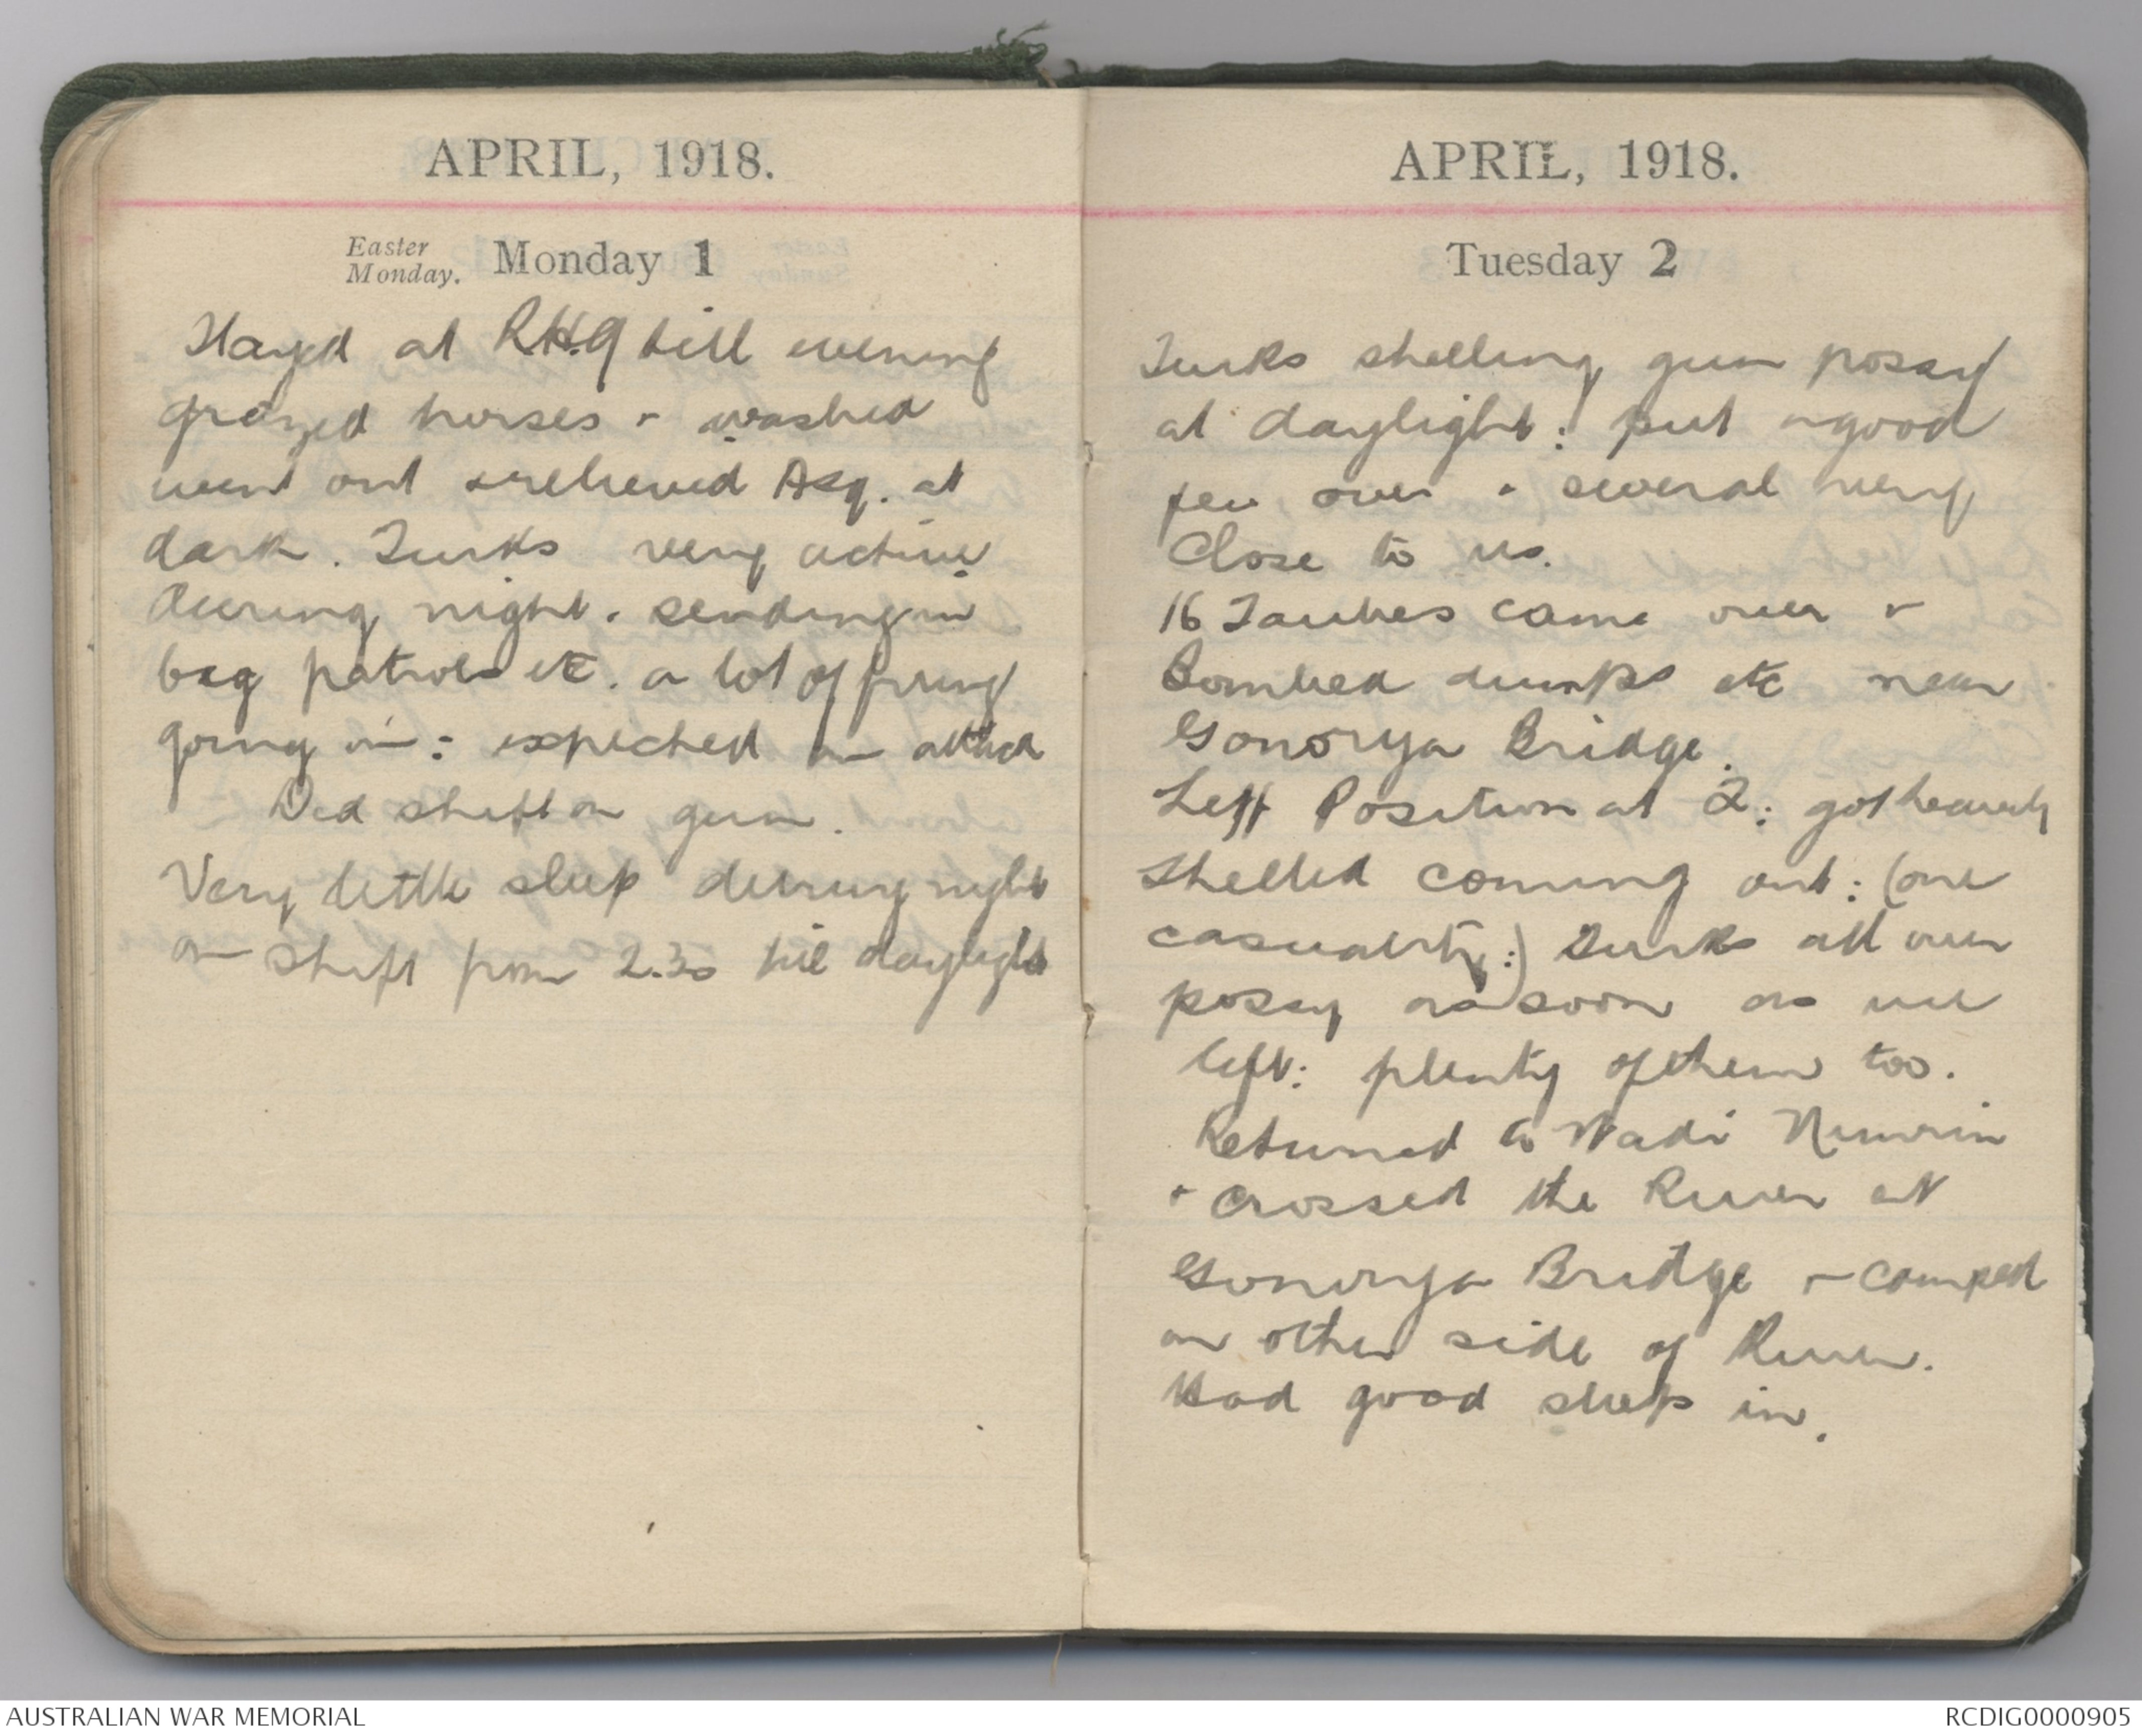 APRIL, 1918.
Easter
Monday. Monday 1
Stayed at RHQ till evening
grazed horses & washed
went out & relieved A sq. at
dark. Turks very active
during night. sending in
big patrols etc. a lot of firing
going on: expected an attack
Did shift on gun.
Very little sleep during night
on shift from 2.30 till daylight
APRIL, 1918.
Tuesday 2
Turks shelling gun possy
at daylight: put a good
few over & several very
Close to us.
16 Taubes came over &
Bombed dumps etc near
Gonorya Bridge.
Left Position at 2: got heavily
shelled coming out: (one
casualty:) Turks all over
possy as soon as we
left: plenty of them too.
Returned to Wadi Nimrin
& crossed the River at
Gonorya Bridge & camped
on other side of River.
Had good sleep in.
AUSTRALIAN WAR MEMORIAL
RCDIG0000905